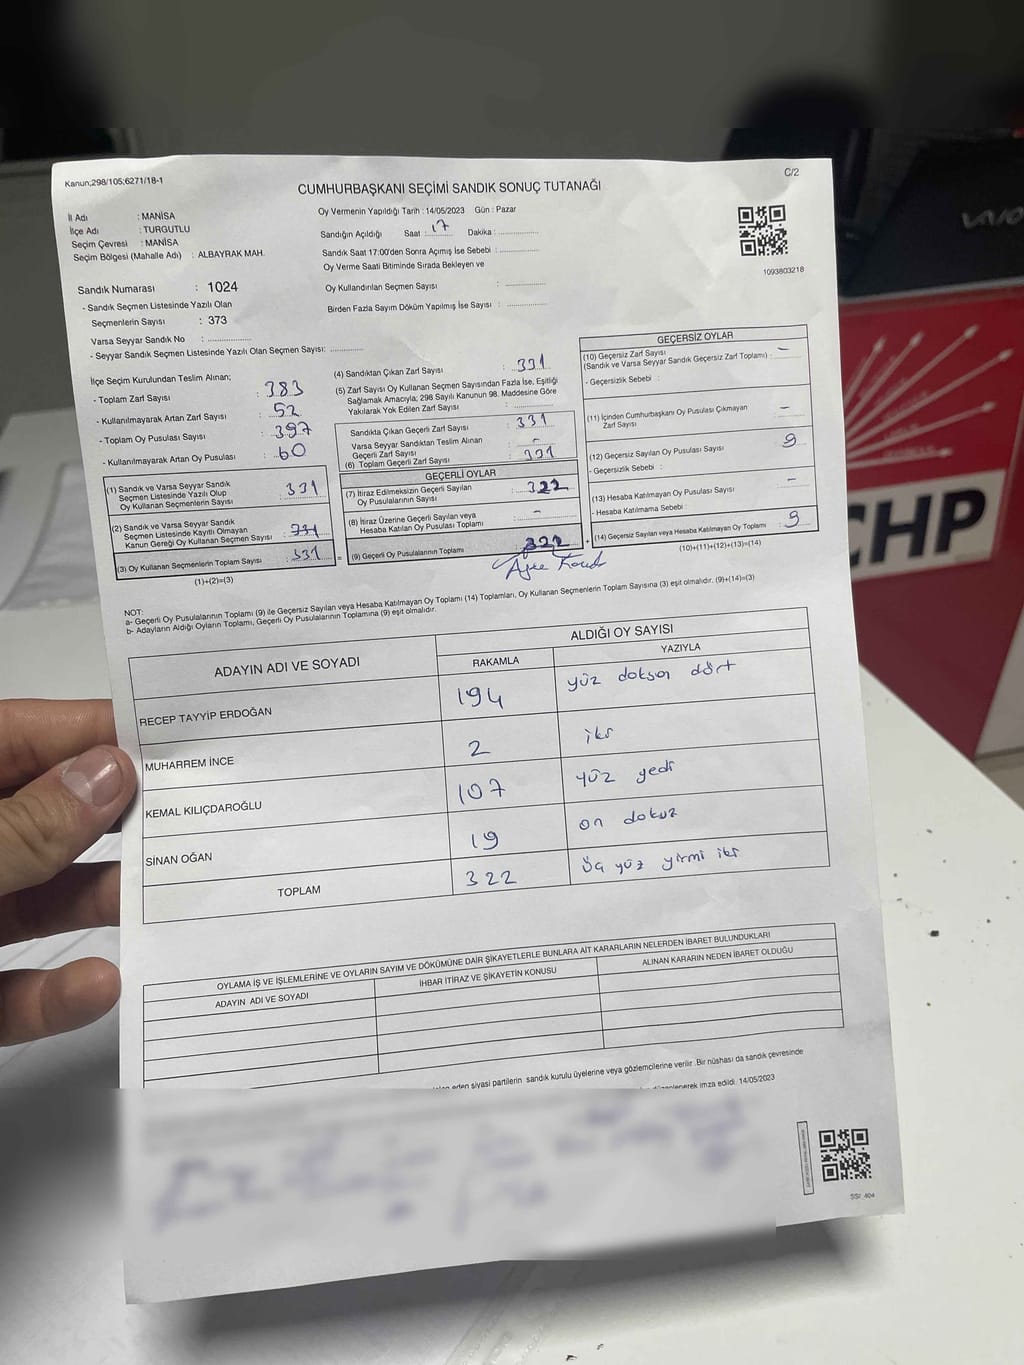 Kanun;298/105;6271/18-1
C/2
CUMHURBAŞKANI SEÇİMİ SANDIK SONUÇ TUTANAĞI
İl Adı : MANİSA
İlçe Adı : TURGUTLU
Seçim Çevresi : MANİSA
Seçim Bölgesi (Mahalle Adı) : ALBAYRAK MAH.
Oy Vermenin Yapıldığı Tarih : 14/05/2023 Gün : Pazar
Sandığın Açıldığı Saat : 17 Dakika :
Sandık Saat 17:00'den Sonra Açımış İse Sebebi :
Oy Verme Saati Bitiminde Sırada Bekleyen ve
Oy Kullandırılan Seçmen Sayısı :
Birden Fazla Sayım Döküm Yapılmış İse Sayısı :
1093803218
Sandık Numarası : 1024
- Sandık Seçmen Listesinde Yazılı Olan
Seçmenlerin Sayısı : 373
Varsa Seyyar Sandık No :
- Seyyar Sandık Seçmen Listesinde Yazılı Olan Seçmen Sayısı:
İlçe Seçim Kurulundan Teslim Alınan;
- Toplam Zarf Sayısı : 383
- Kullanılmayarak Artan Zarf Sayısı : 52
- Toplam Oy Pusulası Sayısı : 397
- Kullanılmayarak Artan Oy Pusulası : 60
(1) Sandık ve Varsa Seyyar Sandık
Seçmen Listesinde Yazılı Olup
Oy Kullanan Seçmenlerin Sayısı : 331
(2) Sandık ve Varsa Seyyar Sandık
Seçmen Listesinde Kayıtlı Olmayan
Kanun Gereği Oy Kullanan Seçmen Sayısı :
(3) Oy Kullanan Seçmenlerin Toplam Sayısı : 331 =
(1)+(2)=(3)
(4) Sandıktan Çıkan Zarf Sayısı : 331
(5) Zarf Sayısı Oy Kullanan Seçmen Sayısından Fazla İse, Eşitliği
Sağlamak Amacıyla; 298 Sayılı Kanunun 98. Maddesine Göre
Yakılarak Yok Edilen Zarf Sayısı :
Sandıkta Çıkan Geçerli Zarf Sayısı : 331
Varsa Seyyar Sandıktan Teslim Alınan
Geçerli Zarf Sayısı : -
(6) Toplam Geçerli Zarf Sayısı : 331
GEÇERLİ OYLAR
(7) İtiraz Edilmeksizin Geçerli Sayılan
Oy Pusulalarının Sayısı : 322
(8) İtiraz Üzerine Geçerli Sayılan veya
Hesaba Katılan Oy Pusulası Toplamı : -
(9) Geçerli Oy Pusulalarının Toplamı : 322 +
GEÇERSİZ OYLAR
(10) Geçersiz Zarf Sayısı
(Sandık ve Varsa Seyyar Sandık Geçersiz Zarf Toplamı) : -
- Geçersizlik Sebebi :
(11) İçinden Cumhurbaşkanı Oy Pusulası Çıkmayan
Zarf Sayısı : -
(12) Geçersiz Sayılan Oy Pusulası Sayısı : 9
- Geçersizlik Sebebi :
(13) Hesaba Katılmayan Oy Pusulası Sayısı : -
- Hesaba Katılmama Sebebi :
(14) Geçersiz Sayılan veya Hesaba Katılmayan Oy Toplamı : 9
(10)+(11)+(12)+(13)=(14)
NOT:
a- Geçerli Oy Pusulalarının Toplamı (9) ile Geçersiz Sayılan veya Hesaba Katılmayan Oy Toplamı (14) Toplamları, Oy Kullanan Seçmenlerin Toplam Sayısına (3) eşit olmalıdır. (9)+(14)=(3)
b- Adayların Aldığı Oyların Toplamı, Geçerli Oy Pusulalarının Toplamına (9) eşit olmalıdır.
ADAYIN ADI VE SOYADI
ALDIĞI OY SAYISI
RAKAMLA YAZIYLA
RECEP TAYYİP ERDOĞAN 194 yüz doksan dört
MUHARREM İNCE 2 iki
KEMAL KILIÇDAROĞLU 107 yüz yedi
SİNAN OĞAN 19 on dokuz
TOPLAM 322 üç yüz yirmi iki
OYLAMA İŞ VE İŞLEMLERİNE VE OYLARIN SAYIM VE DÖKÜMÜNE DAİR ŞİKAYETLERLE BUNLARA AİT KARARLARIN NELERDEN İBARET BULUNDUKLARI
ADAYIN ADI VE SOYADI İHBAR İTİRAZ VE ŞİKAYETİN KONUSU ALINAN KARARIN NEDEN İBARET OLDUĞU
eden siyasi partilerin sandık kurulu üyelerine veya gözlemcilerine verilir. Bir nüshası da sandık çevresinde
imza edildi. 14/05/2023
SSI_404
CHP
VAIO